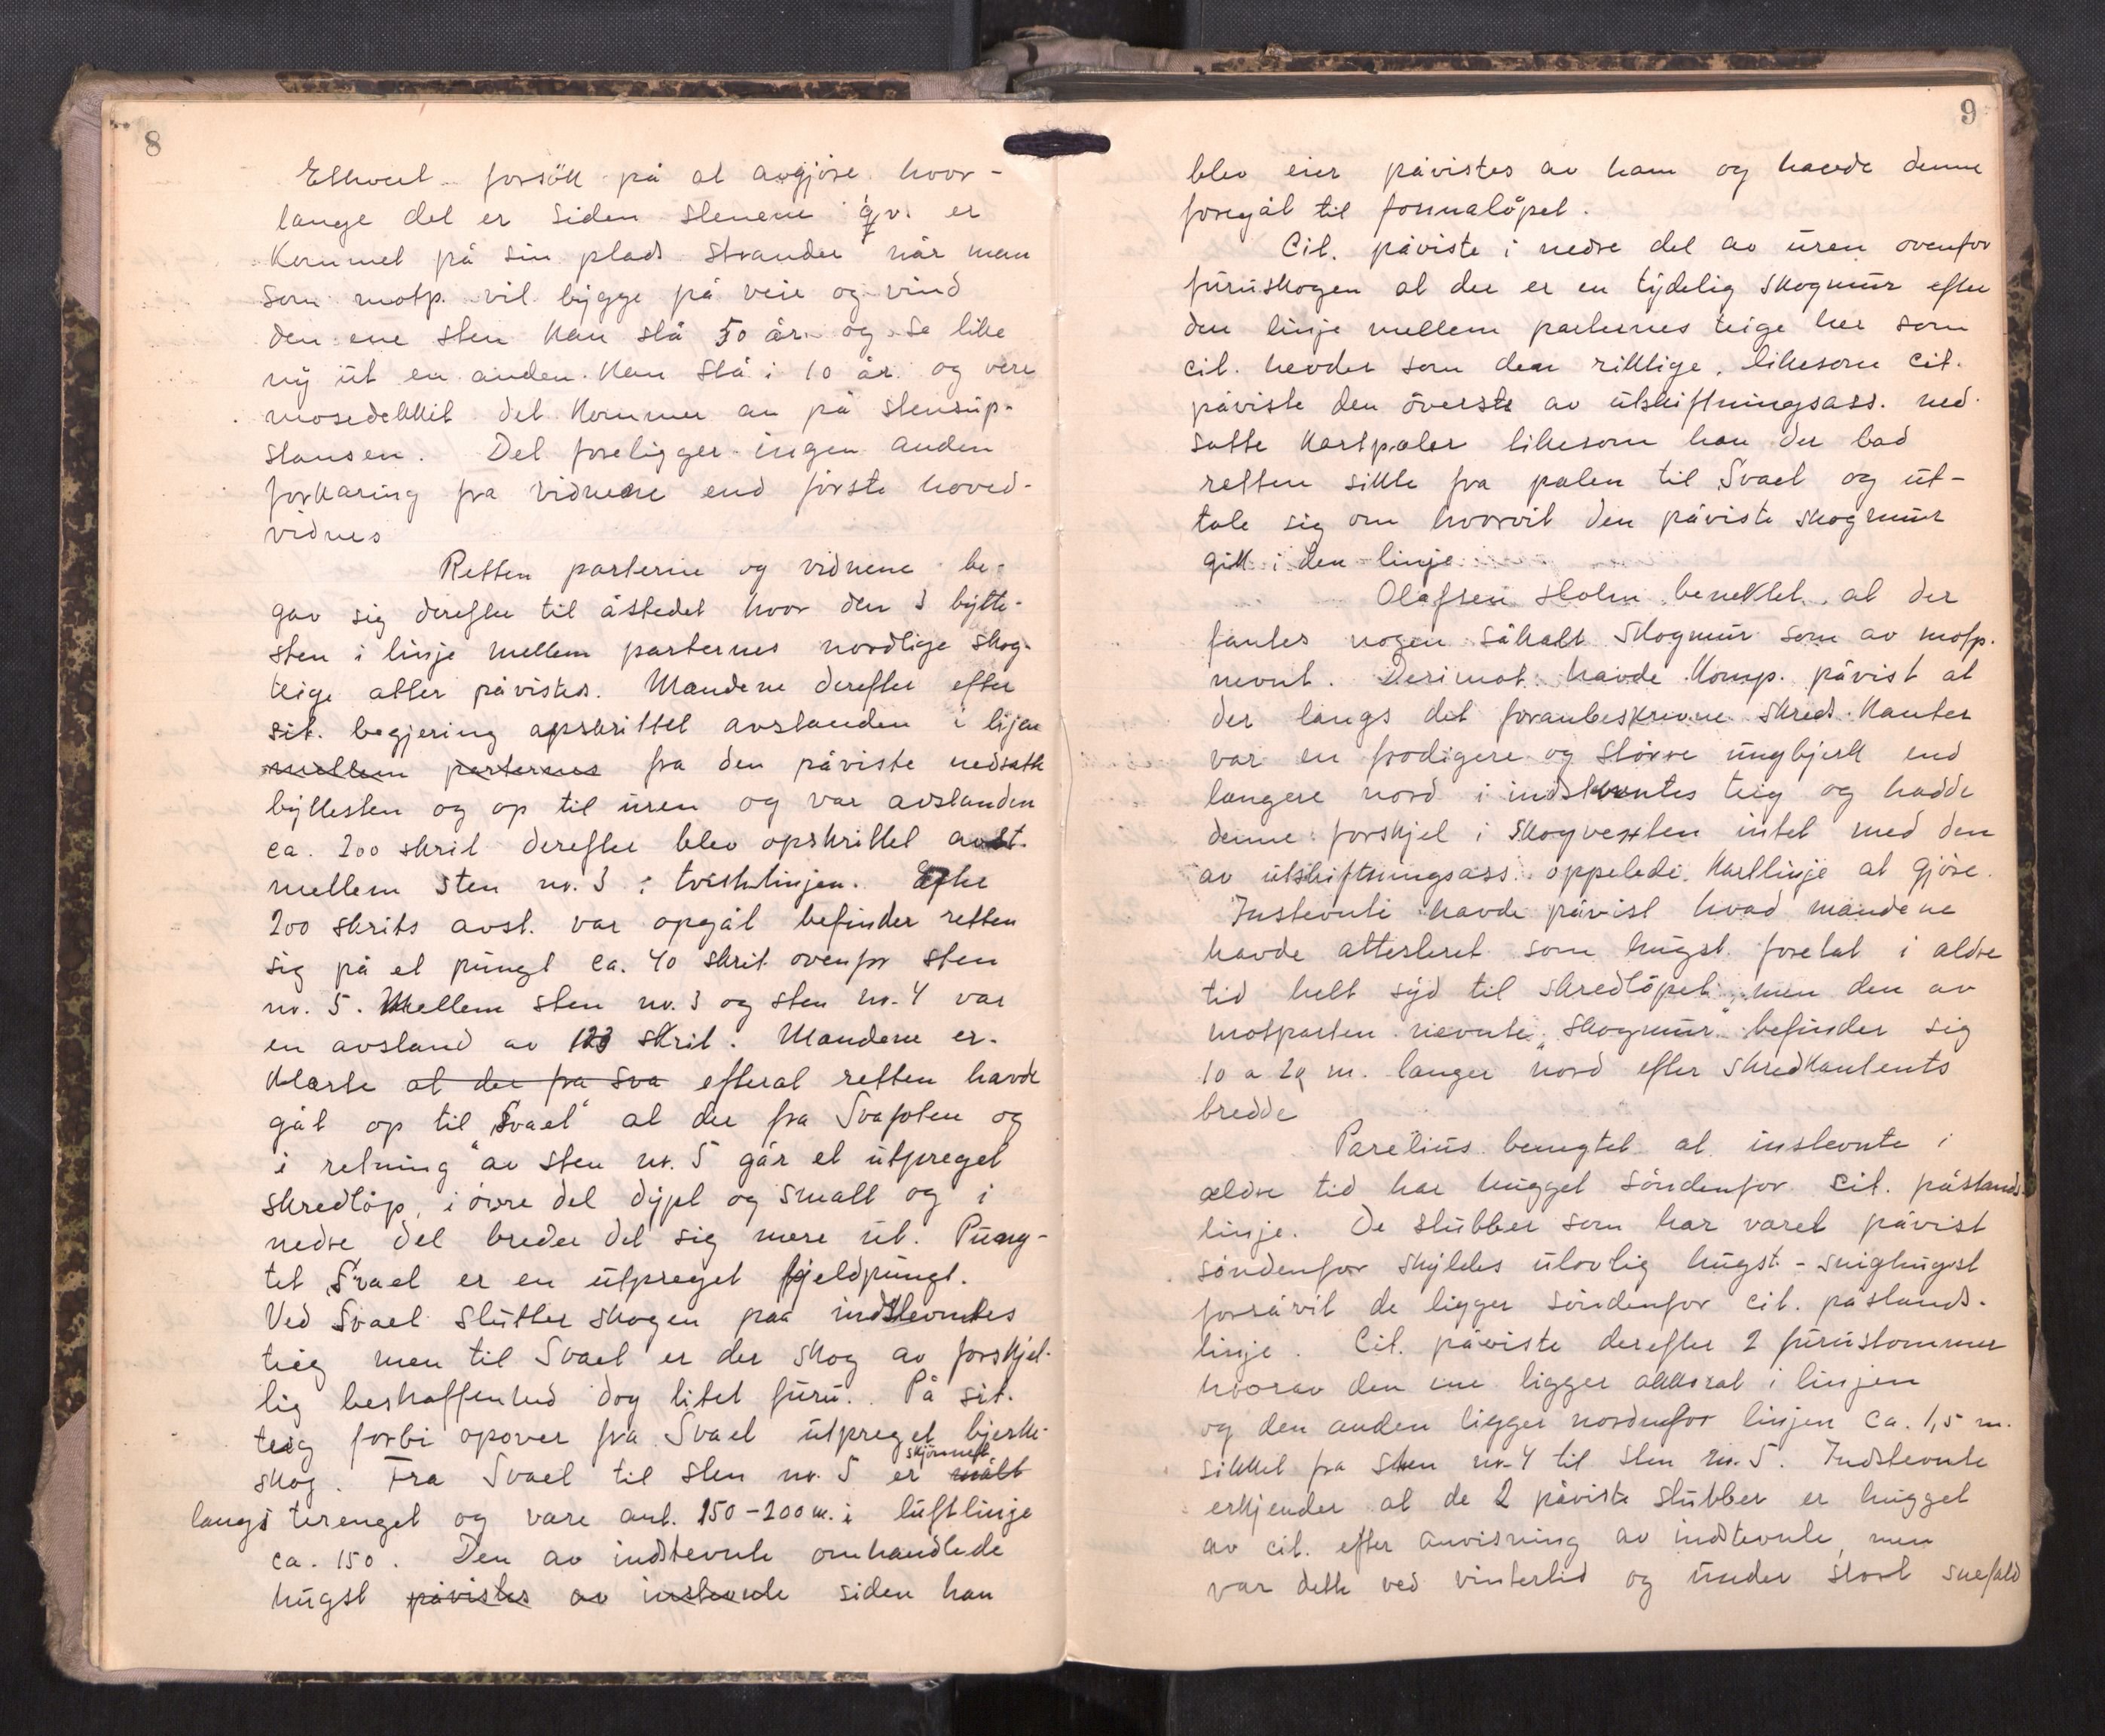 8
Ethvert forsøk på at avgjøre hvor-
lange det er siden stenene q.v. er
kommet på sin plads strander når man
som motp. vil bygge på veir og vind
den ene sten kan stå 50 år og se like
ny ut en anden kan stå i 10 år og vere
mosedekket det kommer an på stensup-
stansen. Det foreligger ingen anden
forklaring fra vidnene end første hoved-
vidnes
Retten parterne og vidnene be-
gav sig derefter til åstedet hvor den 3 bytte-
sten i linje mellem parternes nordlige skog-
teige atter påvistes. Mændene derefter efter
cit. begjering opskrittet avstanden i lijen
mellem parternes fra den påviste nedsatte
byttesten og op til uren og var avstanden
ca. 200 skrit derefter blev opskrittet avst.
mellem sten nr. 3 i tvistelinjen. Efter
200 skrits avst. var opgåt befinder retten
sig på et pungt ca. 40 skrit ovenfor sten
nr. 5. Mellem sten nr. 3 og sten nr. 4 var
en avstand av 123 skrit. Mændene er-
klærte at der fra Sva efterat retten havde
gåt op til "Svaet" at der fra Svafoten og
i retning av sten nr. 5 går et utpreget
skredløp, i øvre del dypt og smalt og i
nedre del breder det sig mere ut. Pung-
tet Svaet er en utpreget fjeldpungt.
Ved Svaet slutter skogen paa indstevntes
teig men til Svaet er der skog av forskjel-
lig beskaffenhed dog litet furu. På cit.
teig forbi opover fra Svaet utpreget bjerke-
skog. Fra Svaet til sten nr. 5 er målt skjønnet
langs terenget og være ant. 150-200 m. i luftlinje
ca. 150. Den av indstevnte omhandlede
hugst påvistes av instevnte siden han
9
blev eier påvistes av ham og havde denne
foregåt til fonnaløpet.
Cit. påviste i nedre del av uren ovenfor
furuskogen at der er en tydelig skogmur efter
den linje mellem parternes teige her som
cit. hevder som den riktige, likesom cit.
påviste den øverste av utskiftningsass. ned-
satte kartpæler likesom han der bad
retten sikte fra pælen til Svaet og ut-
tale sig om hvorvit den påviste skogmur
gikk i den linje
Olafsen Holm benektet at der
fantes nogen såkalt skogmur som av motp.
nevnt. Derimot havde komp. påvist at
der langs det foranbeskrevne skreds kanter
var en frodigere og større ungbjerk end
længere nord i indstevntes teig og hadde
denne forskjel i skogvexten intet med den
av utskiftningsass. oppeledte kartlinje at gjøre.
Instevnte havde påvist hvad mændene
havde attesteret som hugst foretat i ældre
tid helt syd til skredløpet, men den av
motparten nevnte "skogmur" befinder sig
10 a 20 m. længer nord efter skredkantents
bredde
Parelius benegtet at instevnte i
ældre tid har hugget søndenfor cit. påstands
linje. De stubber som har været påvist
søndenfor skyldes ulovlig hugst - snighugst
forsåvit de ligger søndenfor cit. påstands-
linje. Cit. påviste derefter 2 furustommer
hvorav den ene ligger akkurat i linjen
og den anden ligger nordenfor linjen ca. 1,5 m.
siktet fra sten nr. 4 til sten nr. 5. Indstevnte
erkjender at de 2 påviste stubber er hugget
av cit. efter anvisning av indstevnte, men
var dette ved vintertid og under stort snefald